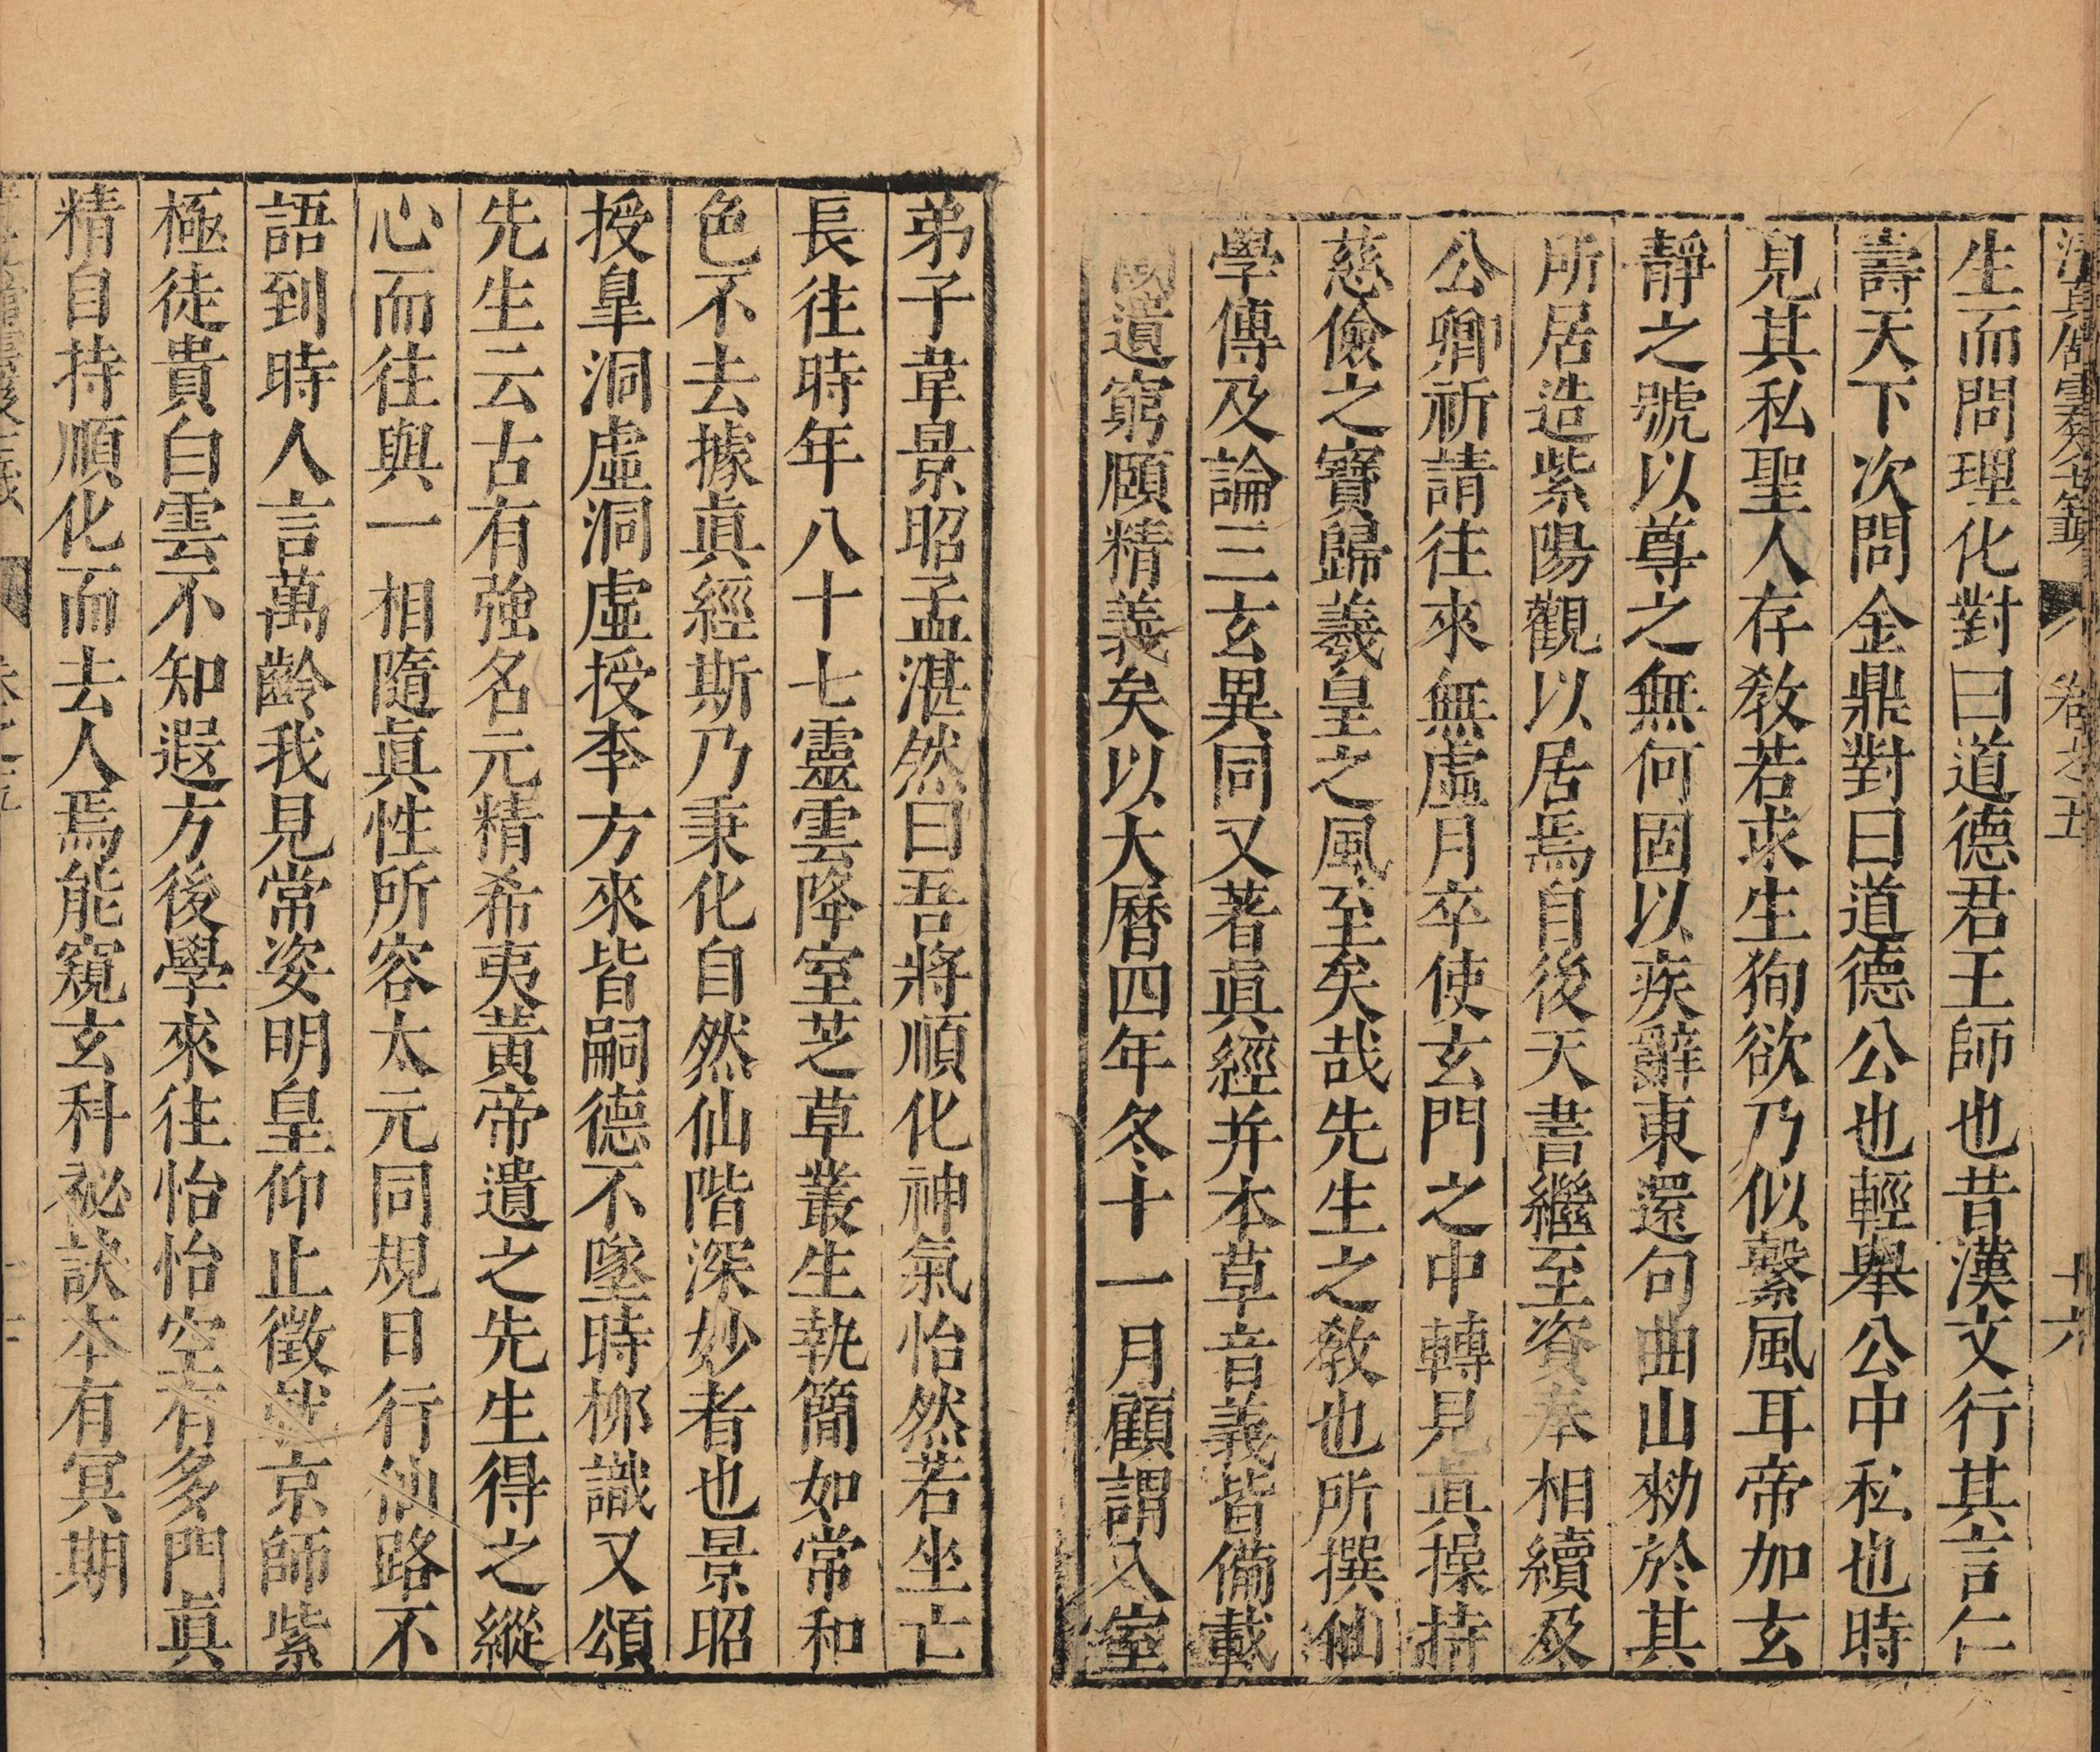 清真館雲笈七籤 卷之五 十六
生而問理化對曰道德君王師也昔漢文行其言仁
壽天下次問金鼎對曰道德公也輕舉公中私也時
見其私聖人存教若求生狥欲乃似繫風耳帝加玄
靜之號以尊之無何固以疾辭東還句曲山勑於其
所居造紫陽觀以居焉自後天書繼至資奉相續及
公卿祈請往來無虛月卒使玄門之中轉見真操持
慈儉之寶歸羲皇之風至矣哉先生之教也所撰仙
學傳及論三玄異同又著眞經并本草音義皆備載
闕遺窮頤精義矣以大曆四年冬十一月顧謂入室
弟子韋景昭孟湛然曰吾將順化神氣怡然若坐亡
長往時年八十七靈雲降室芝草叢生執簡如常和
色不去據眞經斯乃秉化自然仙階深妙者也景昭
授皐洞虛洞虛授李方來皆嗣德不墜時栁識又頌
先生云古有強名元精希夷黃帝遺之先生得之縱
心而往與一相隨眞性所容太元同規日行仙路不
語到時人言萬齡我見常姿明皇仰止徵就京師紫
極徒貴白雲不知遐方後學來往怡怡空有多門眞
精自持順化而去人焉能窺玄科祕訣本有冥期